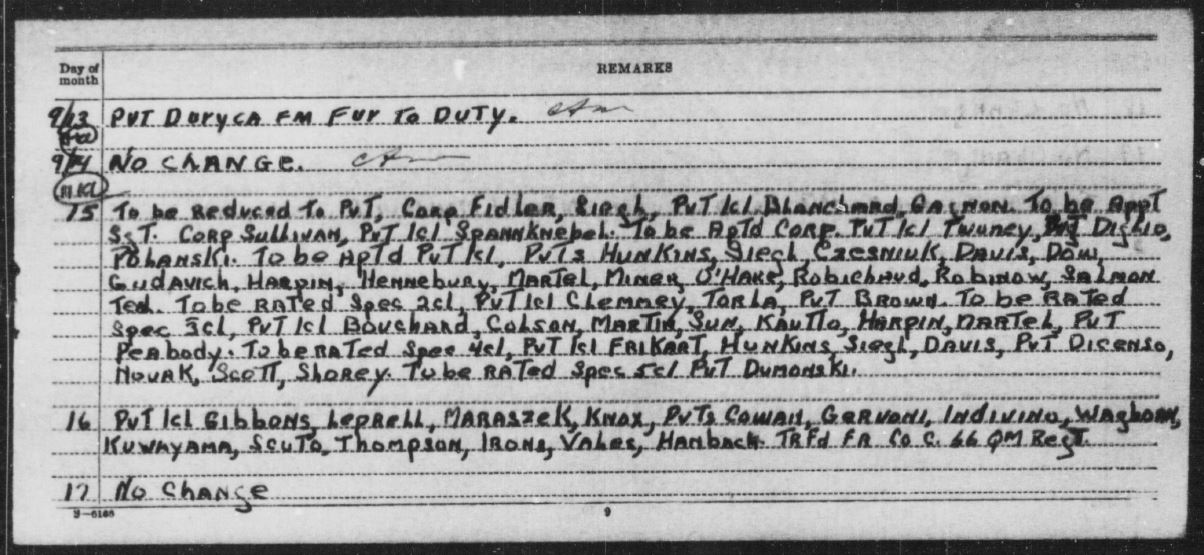 Day of month
REMARKS
9/13 PVT DURYEA FM FUR TO DUTY.
9/14 NO CHANGE.
15 To be Reduced To PvT, Corp Fidler, Siegh, PvT 1cl Blanchard, Gagnon. To be Appt
SgT. Corp Sullivan, PvT 1cl Spannknebel. To be Aptd Corp. PvT 1cl Twuney, PvT Diglio,
Polanski. To be Aptd PvT 1cl, PvTs Hunkins, Siegl, Czesniuk, Davis, Dow,
Gudavich, Harpin, Hennebury, Martel, Miner, O'Hare, Robichaud, Robinow, Salmon
Ted. To be Rated Spec 2cl, PvT 1cl Clemmey, Torla, PvT Brown. To be Rated
Spec 3cl, PvT 1cl Bouchard, Colson, Martin, Sun, Kautto, Harpin, Martel, PvT
Peabody. To be Rated Spec 4cl, PvT 1cl Frikart, Hunkins, Siegl, Davis, PvT Dicenso,
Novak, Scott, Shorey. To be Rated Spec 5cl PvT Dumonski.
16 PvT 1cl Gibbons, Leprell, Maraszek, Knox, PvTs Cowan, Gervoni, Indivino, Wagborn,
Kuwayama, Scuto, Thompson, Irons, Vales, Hanback TRFd FR Co C. 66 QM RegT.
17 No Change
3—6168
9